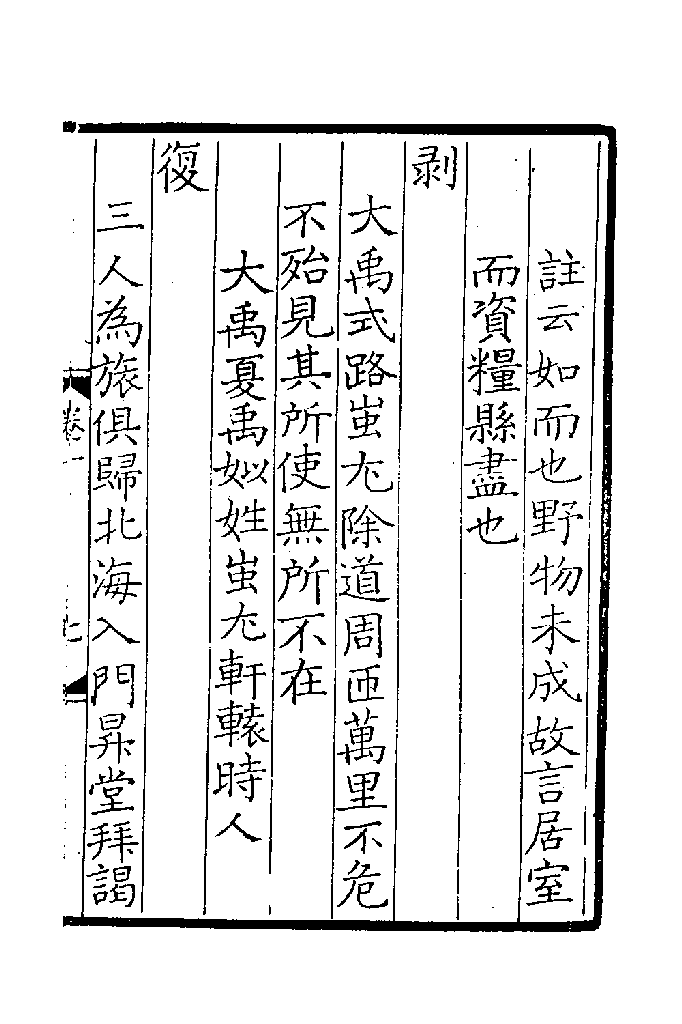 註云如而也野物未成故言居室
而資糧縣盡也
剥
大禹式路蚩尤除道周匝萬里不危
不殆見其所使無所不在
大禹夏禹姒姓蚩尤軒轅時人
復
三人為旅俱歸北海入門昇堂拜謁
卷一